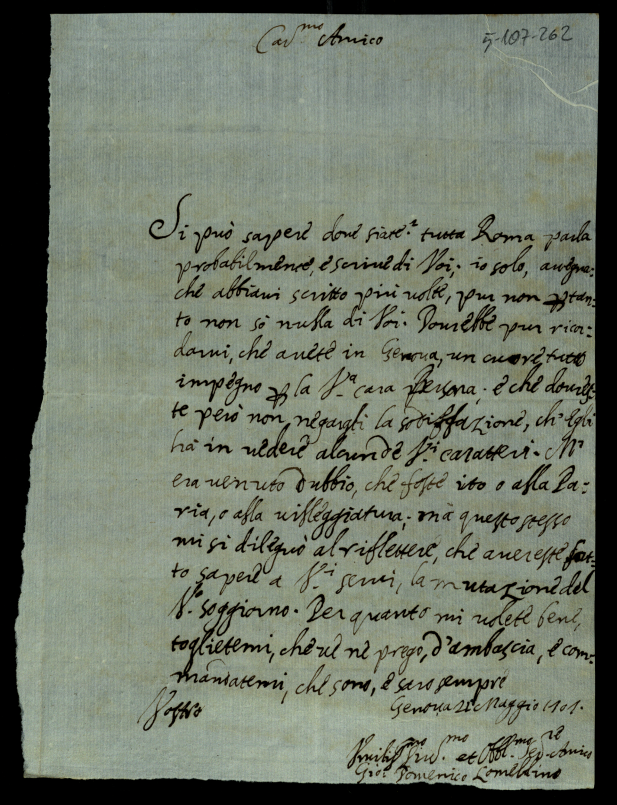 Car.mo Amico
5-107-262
Si può sapere dove siate? tutta Roma parla
probabilmente, e scrive di Voi; io solo, avegna:
che abbiavi scritto più volte, pur non ꝑtan-
to non sò nulla di Voi. Dovrebbe pur ricor-
darvi, che avete in Genova, un cuore tutto
impegno ꝑ la V.a cara Persona; e che doures-
te però non negargli la sodisfazione, ch'egli
hà in vedere alcun de V.i caratteri. M'
era venuto dubbio, che foste ito o alla Pa-
ria, o alla villeggiatura; mà questo stesso
mi si dileguò al riflettere, che avereste fat-
to sapere a V.i servi, la mutazione del
V.o soggiorno. Per quanto mi volete bene,
toglietemi, che ve ne prego, d'ambascia, e com-
mandatemi, che sono, e sarò sempre
Genova Maggio
Vostro
et Amico
Gio: Domenico Lomellino